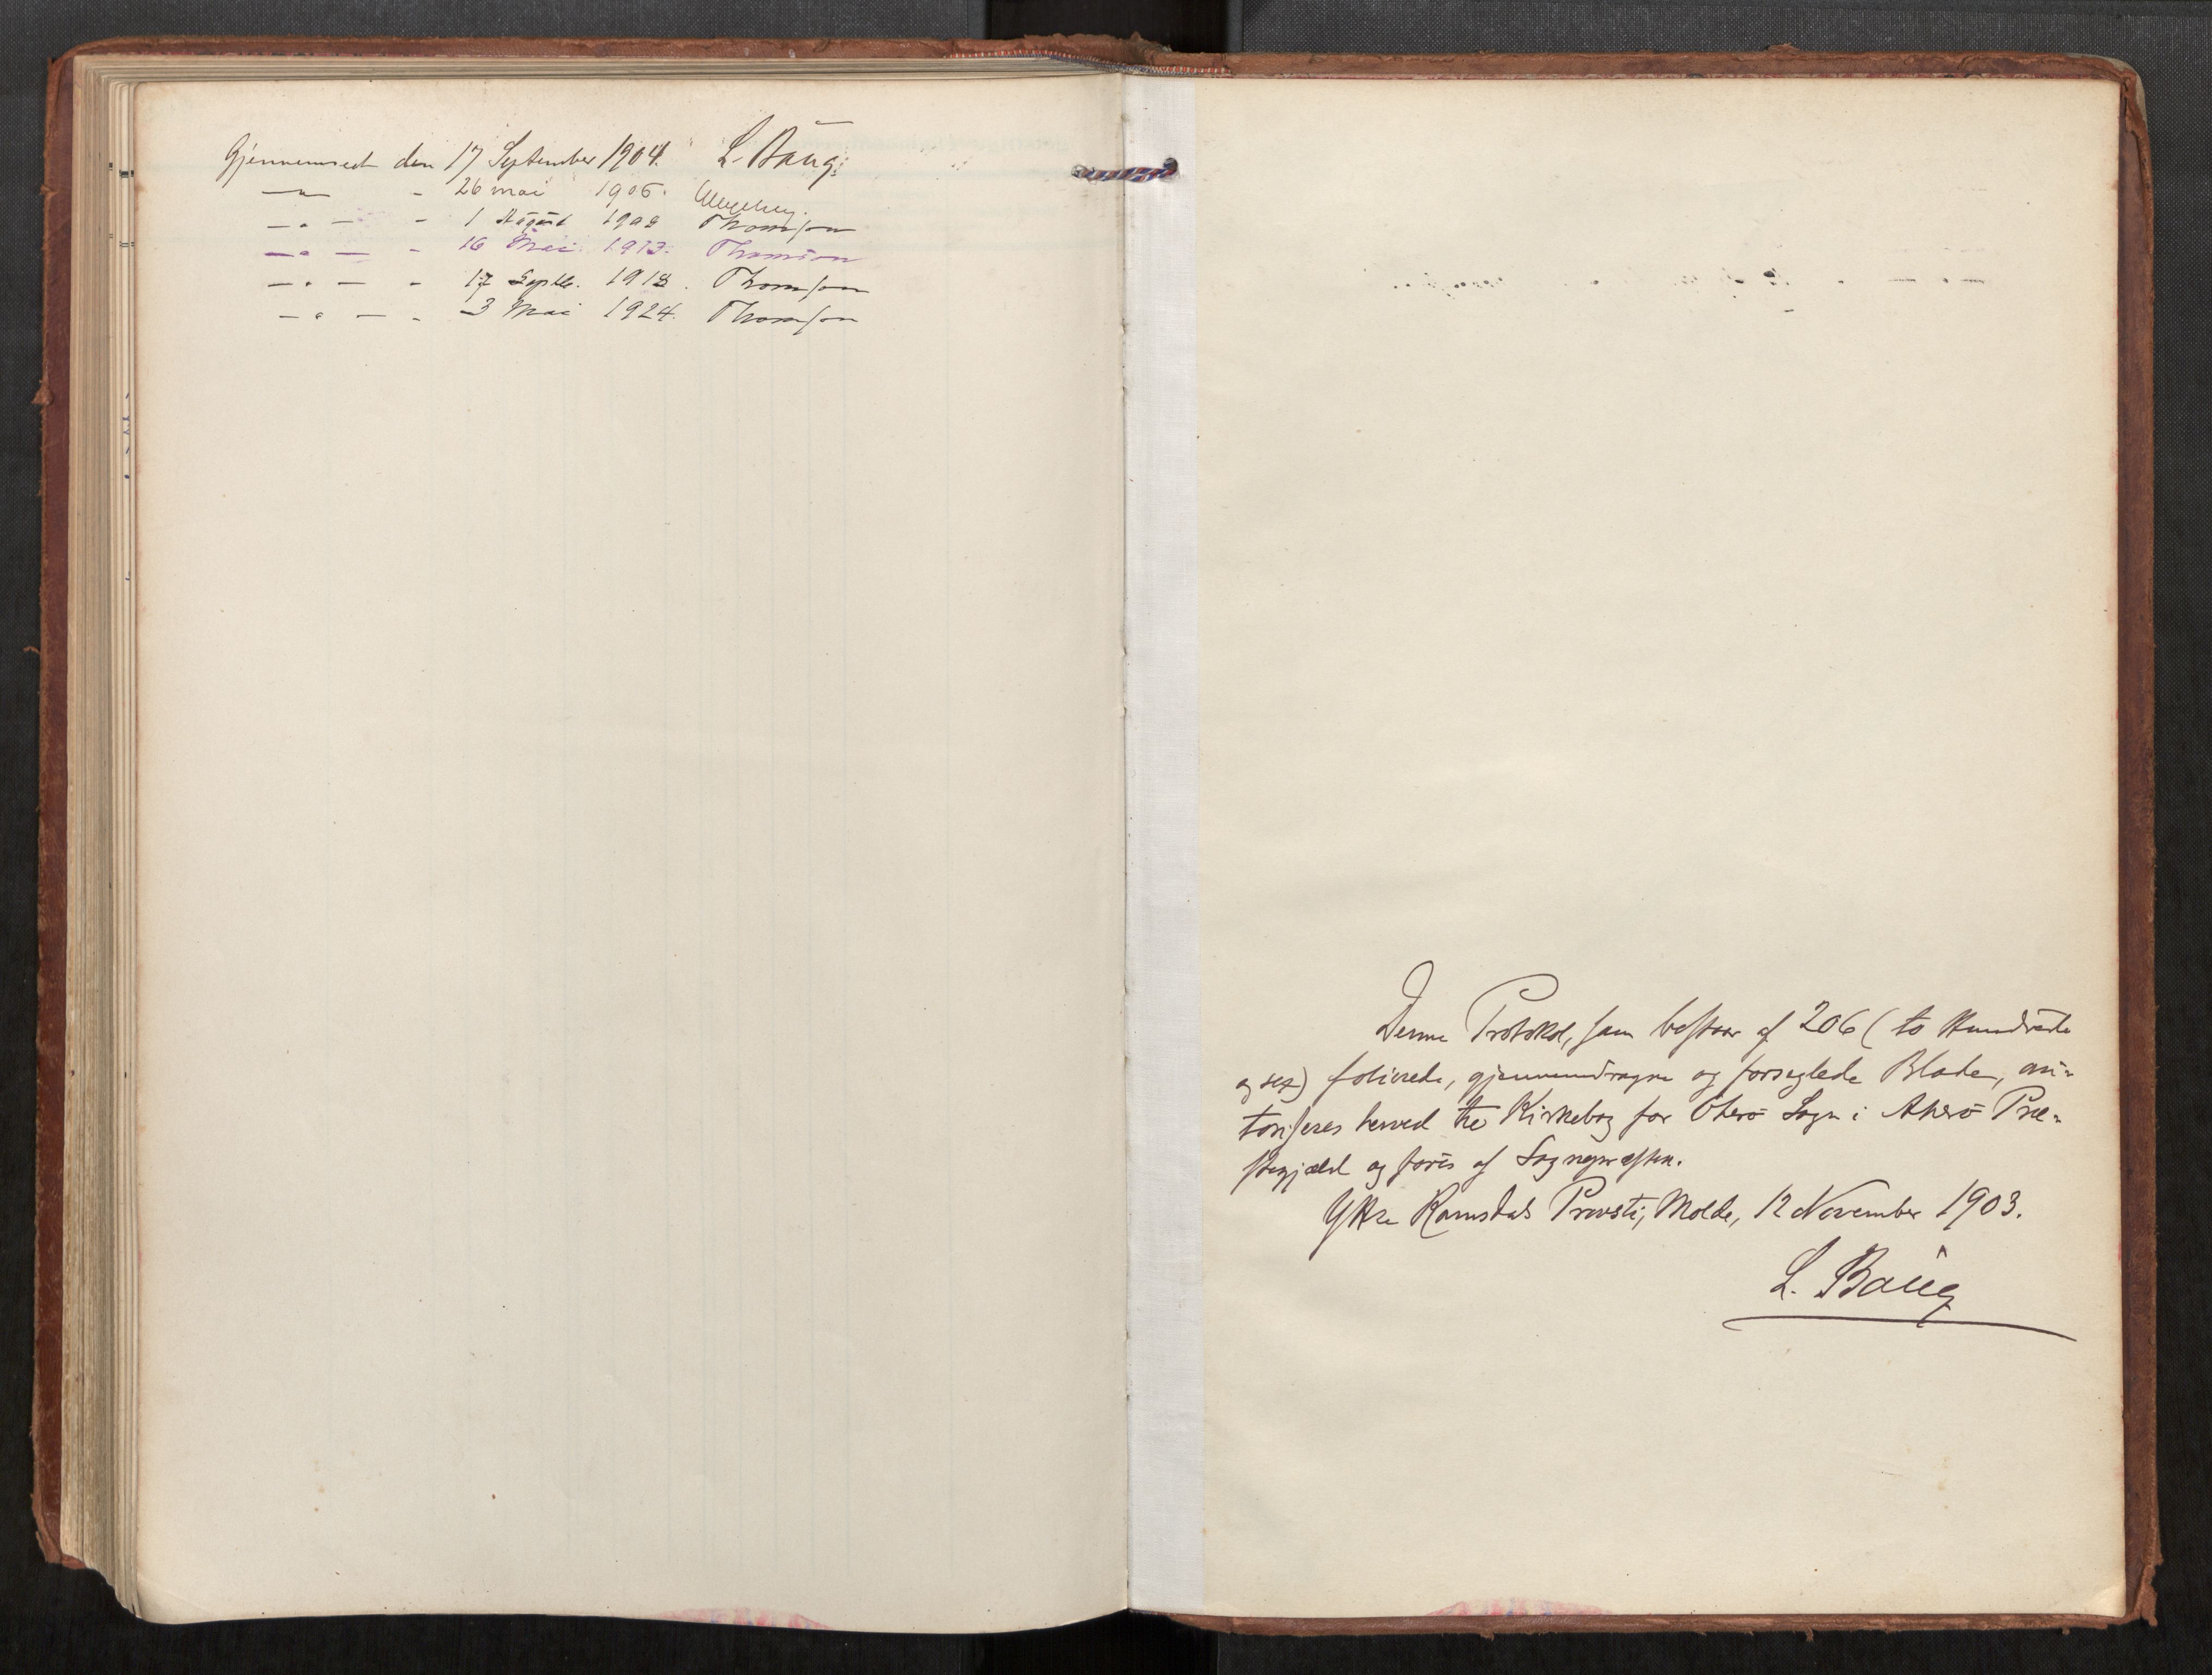 Gjennemseet den 17 September 1904. L. Baug:
— " — - 26 mai 1906.
— " — - 1 August 1908 Thomson
— " — - 16 Mai 1913. Thomson
— " — - 17 Septbr. 1918. Thomson
— " — - 3 Mai 1924. Thomson
Denne Protokol, som bestaar af 206 (to Hundrede
og sex) folierede, gjennemdragne og forseglede Blade, au-
toriseres herved til Kirkebog for Otterö Sogn i Akerö Præ-
stegjæld og föres af Sognepræsten.
Yttre Romsdals Provsti, Molde, 12 November 1903.
L. Baug